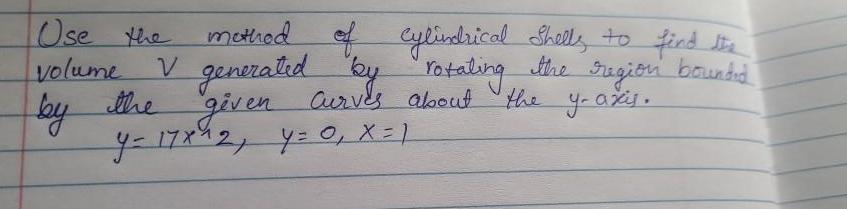 Use the method of cylindrical shells to find the
volume V generated by rotating the region bounded
by the given curves about the y-axis.
y = 17x^2, y = 0, x = 1